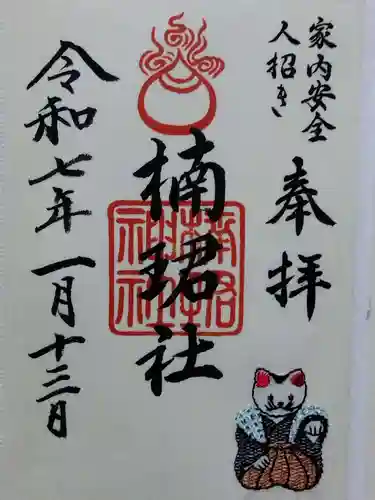 家内安全
人招き
奉拝
楠珺社
令和七年一月十三日